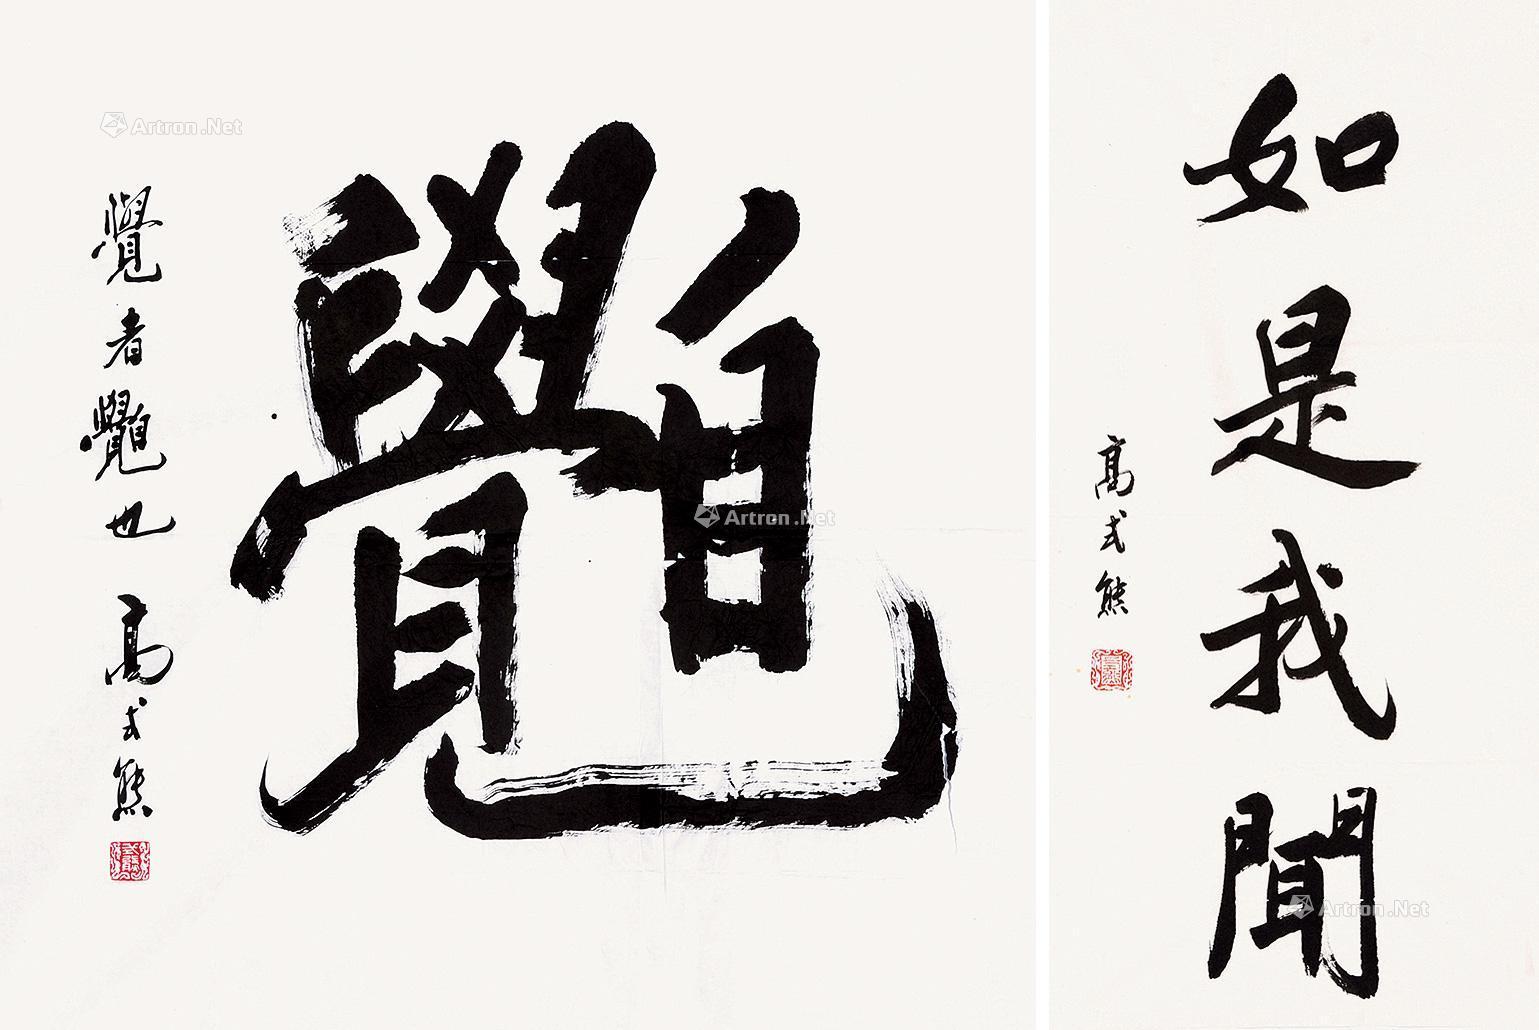 Artron.Net
覺者也 高式熊
Artron.Net
如是我聞
高式熊
Artron.Net